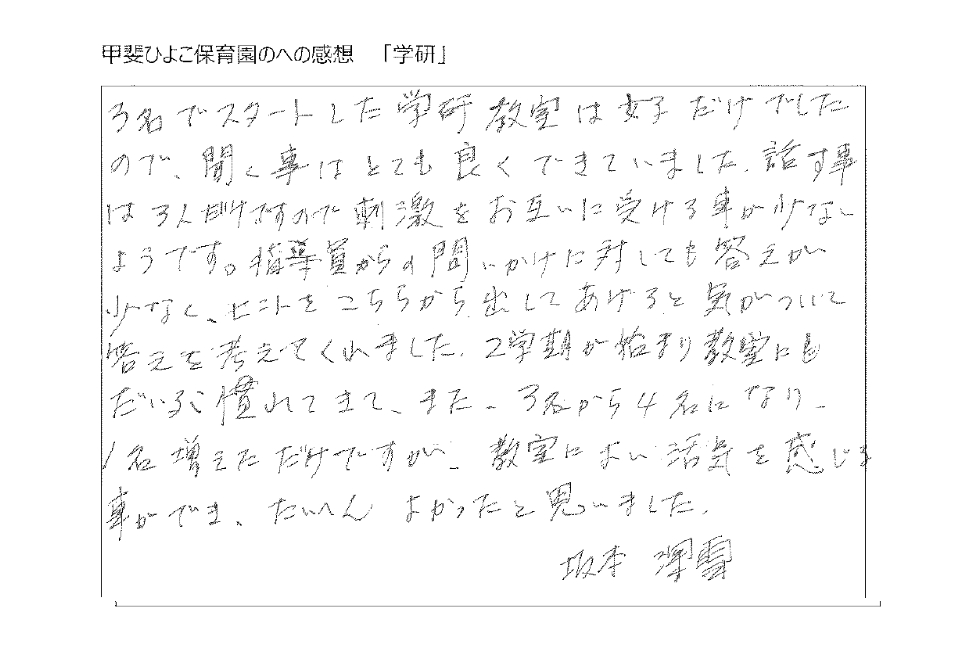 甲斐ひよこ保育園のへの感想 「学研」
3名でスタートした学研教室は女子だけでした
ので、聞く事はとても良くできていました。話す事
は3人だけですので刺激をお互いに受ける事が少ない
ようです。指導員からの問いかけに対しても答えが
少なく、ヒントをこちらから出してあげると気がついて
答えを考えてくれました。2学期が始まり教室にも
だいぶ慣れてきて、また、3名から4名になり、
1名増えただけですが、教室によい活気を感じる
事ができ、たいへんよかったと思いました。
坂本